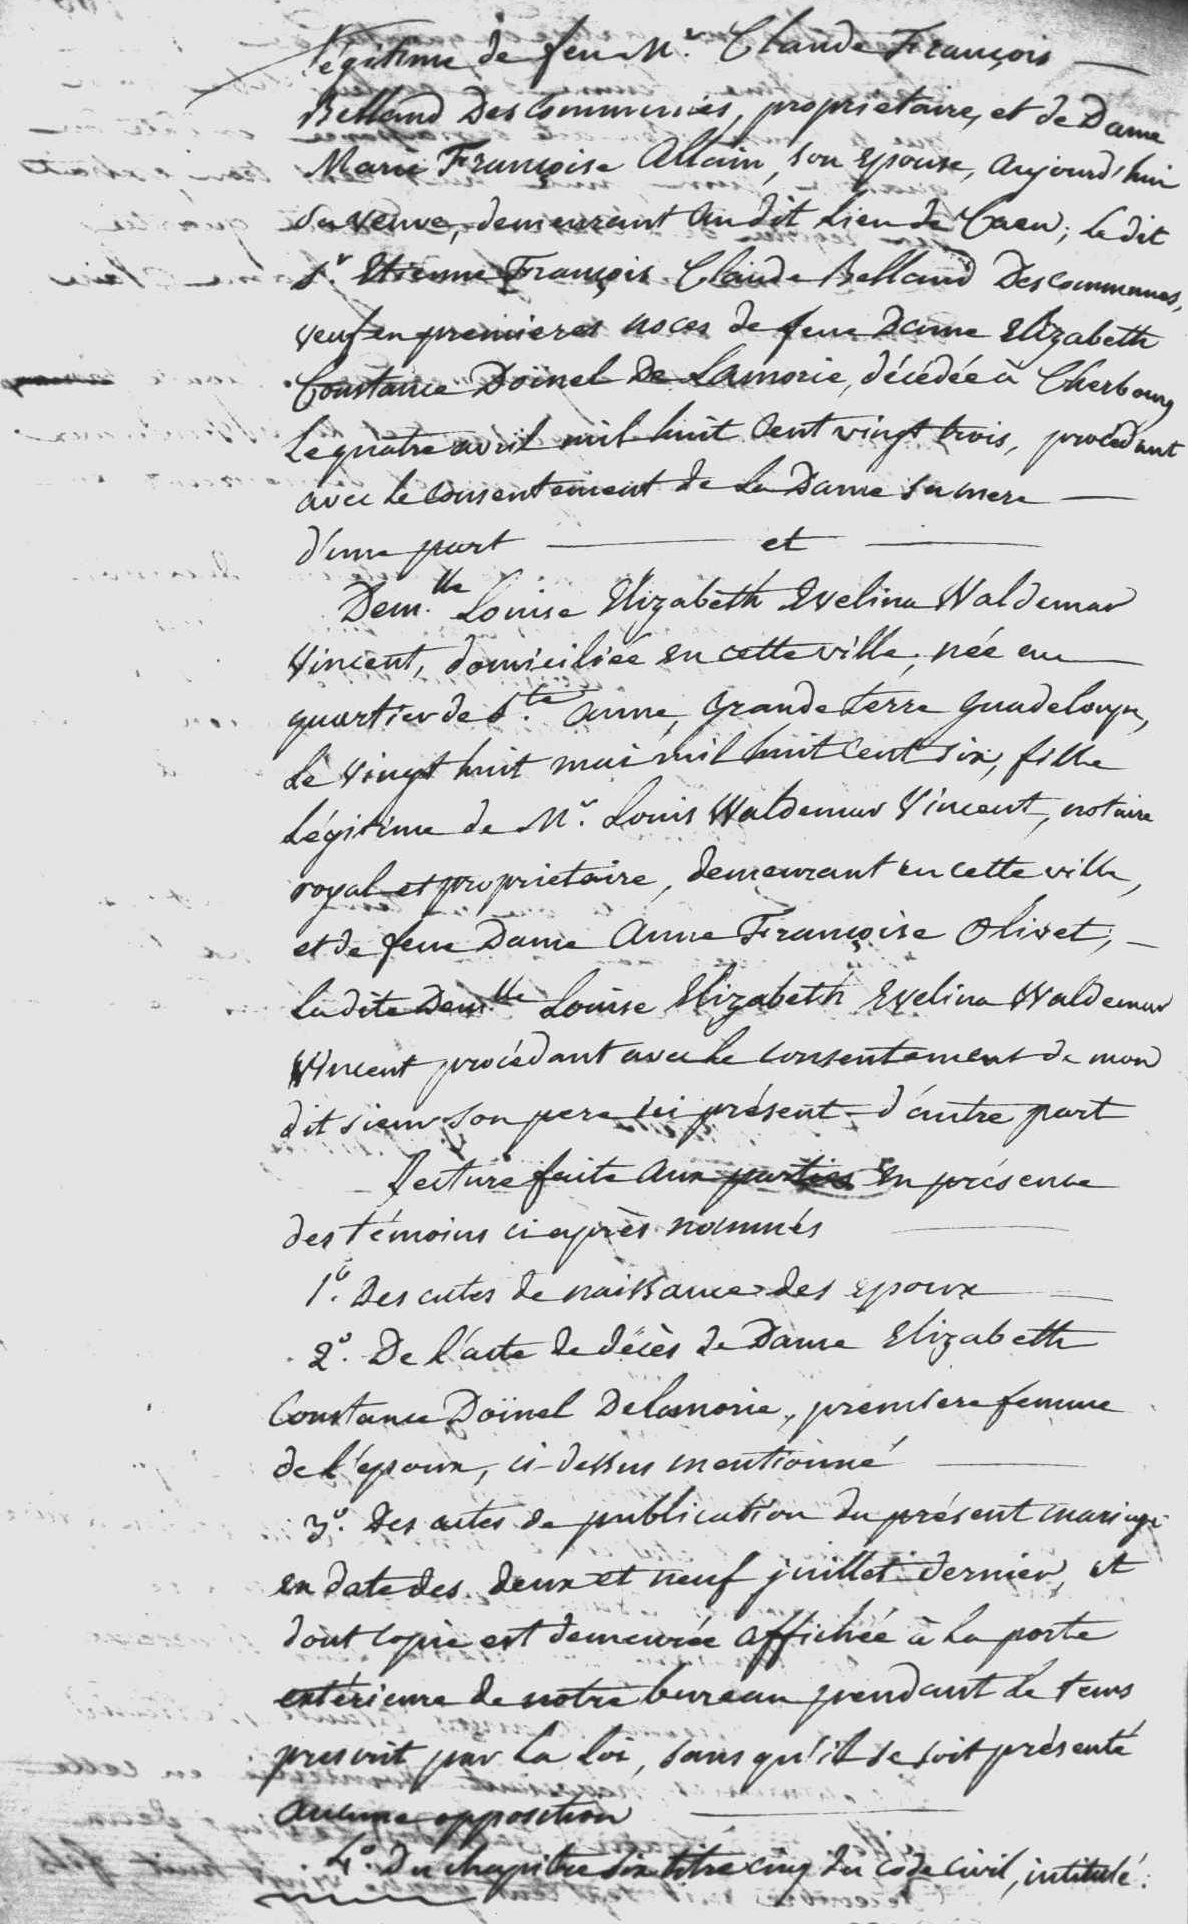 légitime de feu Mr. Claude François
Belland Descommunes, propriétaire, et de Dame
Marie Françoise Allain, son epouse, aujourd'hui
sa veuve, demeurant au dit lieu de Caen; le dit
Sr. Etienne François Claude Belland Descommunes,
veuf en premieres noces de feue Dame Elizabeth
Constance Doïnel De Lamorie, décédée à Cherbourg
le quatre avril mil huit cent vingt trois, procédant
avec le consentement de la Dame sa mere
d'une part et
Dem.lle Louise Elizabeth Evelina Waldemar
Vincent, domiciliée en cette ville, née au
quartier de Ste. Anne, Grande terre Guadeloupe,
le vingt huit mai mil huit cent six, fille
légitime de Mr. Louis Waldemar Vincent, notaire
royal et propriétaire, demeurant en cette ville,
et de feue Dame Anne Françoise Olivet;
La dite Dem.lle Louise Elizabeth Evelina Waldemar
Vincent procédant avec le consentement de mon
dit sieur son pere ici présent d'autre part
Lecture faite aux parties en présence
des témoins ci après nommés
1°. Des actes de naissance des epoux
2°. De l'acte de décès de Dame Elizabeth
Constance Doïnel Delamorie, premiere femme
de l'epoux, ci-dessus mentionné
3°. Des actes de publication du présent mariage
en date des deux et neuf juillet dernier, et
dont copie est demeurée affichée à la porte
extérieure de notre bureau pendant le tems
prescrit par la loi, sans qu'il se soit présenté
aucune opposition
4°. Du chapitre six titre cinq du code civil, intitulé: